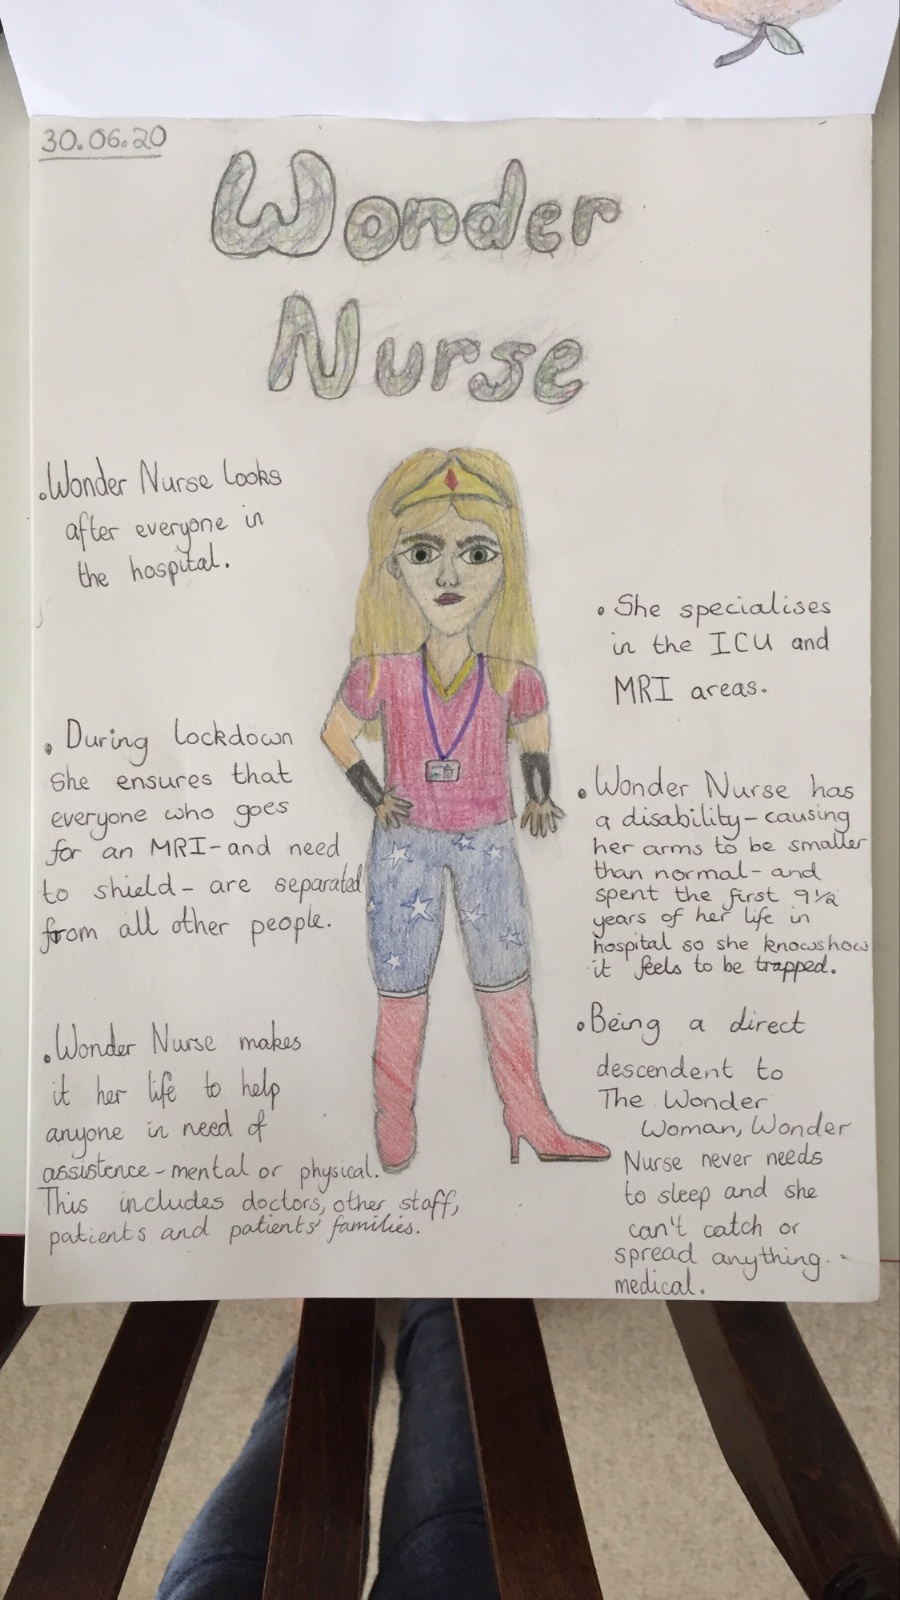 30.06.20
Wonder
Nurse
.Wonder Nurse looks
after everyone in
the hospital.
. During lockdown
she ensures that
everyone who goes
for an MRI-and need
to shield- are separated
from all other people.
.Wonder Nurse makes
it her life to help
anyone in need of
assistence-mental or physical.
This includes doctors, other staff,
patients and patients' families.
. She specialises
in the ICU and
MRI areas.
.Wonder Nurse has
a disability-causing
her arms to be smaller
than normal-and
spent the first 9½
years of her life in
hospital so she knows how
it feels to be trapped.
.Being a direct
descendent to
The Wonder
Woman, Wonder
Nurse never needs
to sleep and she
can't catch or
spread anything
medical.